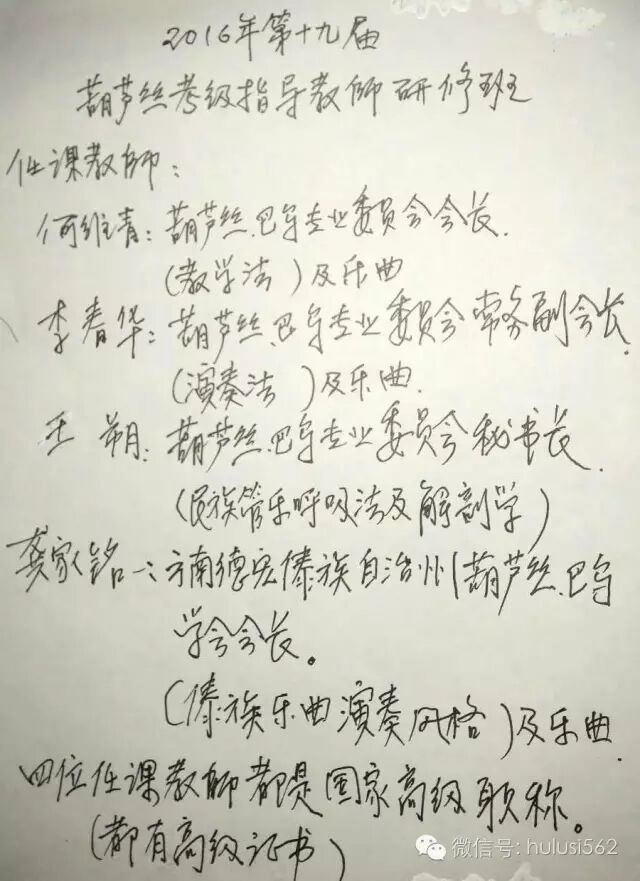 2016年第十九届
葫芦丝考级指导教师研修班
任课教师:
何维青: 葫芦丝.巴乌专业委员会会长.
(教学法)及乐曲
李春华: 葫芦丝.巴乌专业委员会常务副会长.
(演奏法)及乐曲.
王朔: 葫芦丝.巴乌专业委员会秘书长.
(民族管乐呼吸法及解剖学)
龚家铭: 云南德宏傣族自治州葫芦丝.巴乌
学会会长。
(傣族乐曲演奏风格)及乐曲.
四位任课教师都是国家高级职称。
(都有高级证书)
微信号: hulusi562